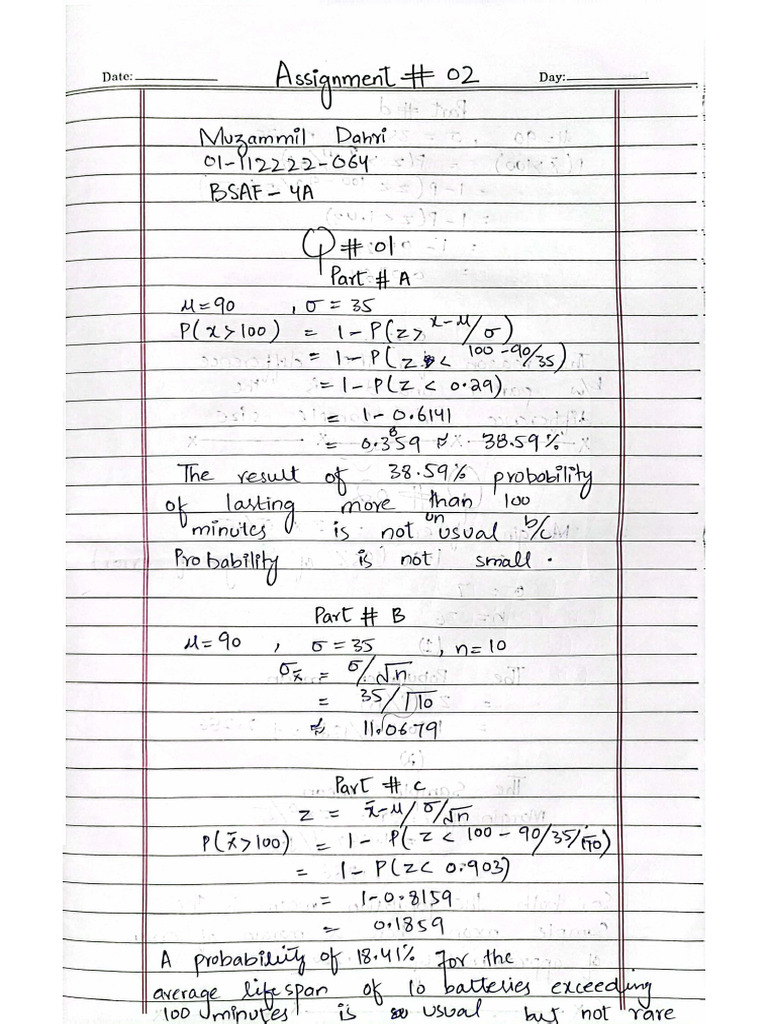 Assignment # 02
Date: Day:
Muzammil Dahri
01-112222-064
BSAF-4A
Q#:01
Part # A
μ=90 , σ=35
P(x>100) = 1-P(z> x-μ/σ)
= 1-P(z < 100-90/35)
= 1-P(z < 0.29)
= 1-0.6141
= 0.3859 ≈ 38.59%
The result of 38.59% probability
of lasting more than 100
minutes is not unusual b/c
Probability is not small.
Part # B
μ=90 , σ=35 , n=10
σx̄ = σ/√n
= 35/√10
≈ 11.0679
Part # C
z = x̄-μ/σ/√n
P(x̄>100) = 1-P(z< 100-90/35/√10)
= 1-P(z< 0.903)
= 1-0.8159
= 0.1859
A probability of 18.41% for the
average lifespan of 10 batteries exceeding
100 minutes is usual but not rare